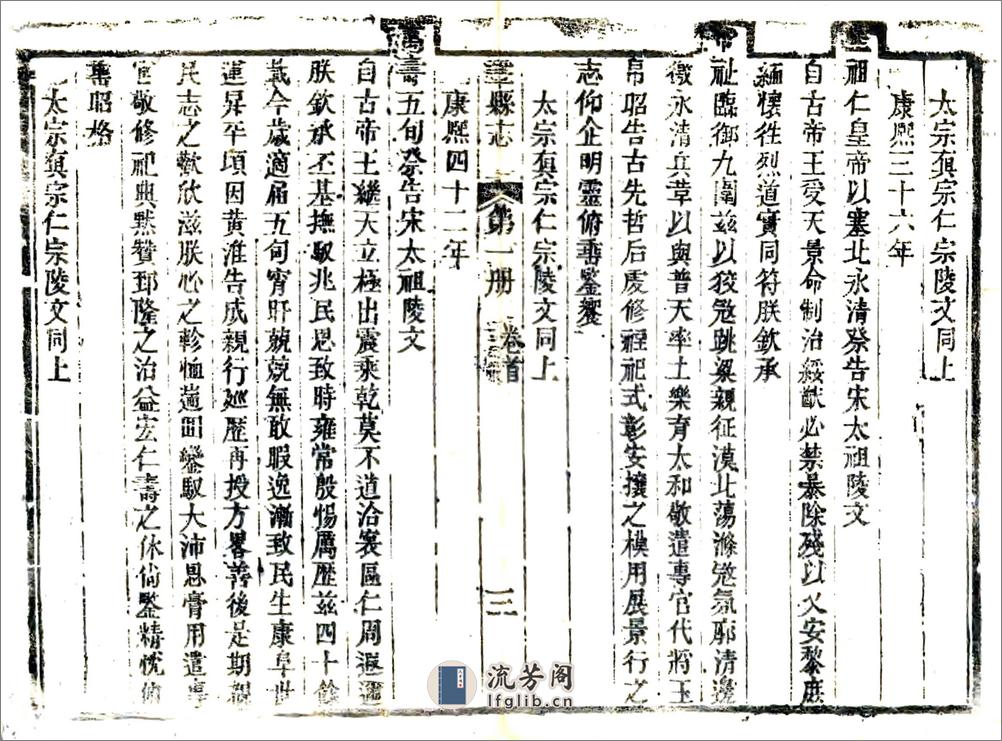 太宗眞宗仁宗陵文同上
康熙三十六年
聖祖仁皇帝以塞北永清祭告宋太祖陵文
自古帝王受天景命制治綏猷必禁暴除殘以乂安黎庶
緬懷徃烈道實同符朕欽承
帝祉臨御九圍茲以狡㓂跳梁親征漠北蕩滌㓂氛廓清邊
徼永清兵革以與普天率土樂育太和敬遣專官代將玉
帛昭告古先哲后虔修禋祀式彰安攘之模用展景行之
志仰企明靈俯垂鑒饗
太宗眞宗仁宗陵文同上
鞏縣志 第一册 卷首 三
康熙四十二年
萬壽五旬祭告宋太祖陵文
自古帝王繼天立極出震乘乾莫不道洽寰區仁周遐邇
朕欽承丕基撫馭兆民思致時雍常殷惕厲歷茲四十餘
載今歲適屆五旬宵旰兢兢無敢暇逸漸致民生康阜世
運昇平頃因黃淮告成親行巡歷再投方畧善後是期覩
民志之歡欣滋朕心之軫恤遄囘鑾馭大沛恩膏用遣專
官敬修祀典黙贊郅隆之治益宏仁壽之休倘鑒精忱俯
垂昭格
太宗眞宗仁宗陵文同上
流芳阁
lfglib.cn